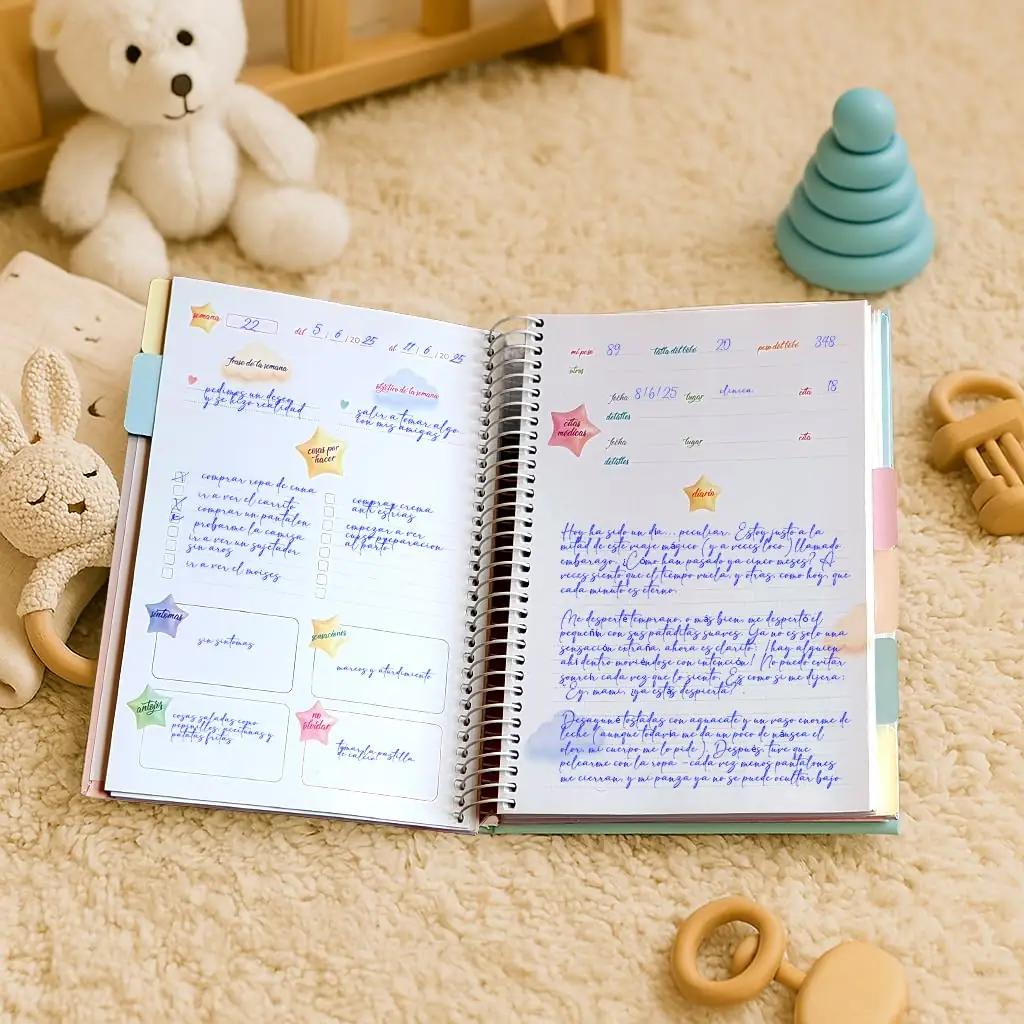 semana 22
del 5 / 6 / 20 25 al 11 / 6 / 20 25
frase de la semana
pedimos un deseo
y se hizo realidad
objetivo de la semana
salir a tomar algo
con mis amigas
cosas por
hacer
comprar ropa de cuna
ir a ver el carrito
comprar un pantalon
probarme la camisa
ir a ver un sujetador
sin aros
ir a ver el moises
comprar crema
anti estrias
empezar a ver
curso preparacion
al parto
síntomas
sin sintomas
sensaciones
mareos y aturdimiento
antojos
cosas saladas como
pepinillos, aceitunas y
patatas fritas
no
olvidar
tomar la pastilla
de calcio
mi peso 89 talla del bebé 29 peso del bebé 348
otros
citas
médicas
fecha 8/6/25 lugar clinica cita 18
detalles
fecha lugar cita
detalles
diario
Hoy ha sido un día... peculiar. Estoy justo a la
mitad de este viaje mágico (y a veces loco) llamado
embarazo. ¿Cómo han pasado ya cinco meses? A
veces siento que el tiempo vuela, y otras, como hoy, que
cada minuto es eterno.
Me desperté temprano, o más bien me despertó el
pequeñín con sus pataditas suaves. Ya no es solo una
sensación extraña, ahora es clarito: ¡hay alguien
ahí dentro moviéndose con intención! No puedo evitar
sonreír cada vez que lo siento. Es como si me dijera:
"Ey, mami, ¿ya estás despierta?".
Desayuné tostadas con aguacate y un vaso enorme de
leche (aunque todavía me da un poco de náusea el
olor, mi cuerpo me lo pide). Después, tuve que
pelearme con la ropa - cada vez menos pantalones
me cierran, y mi panza ya no se puede ocultar bajo